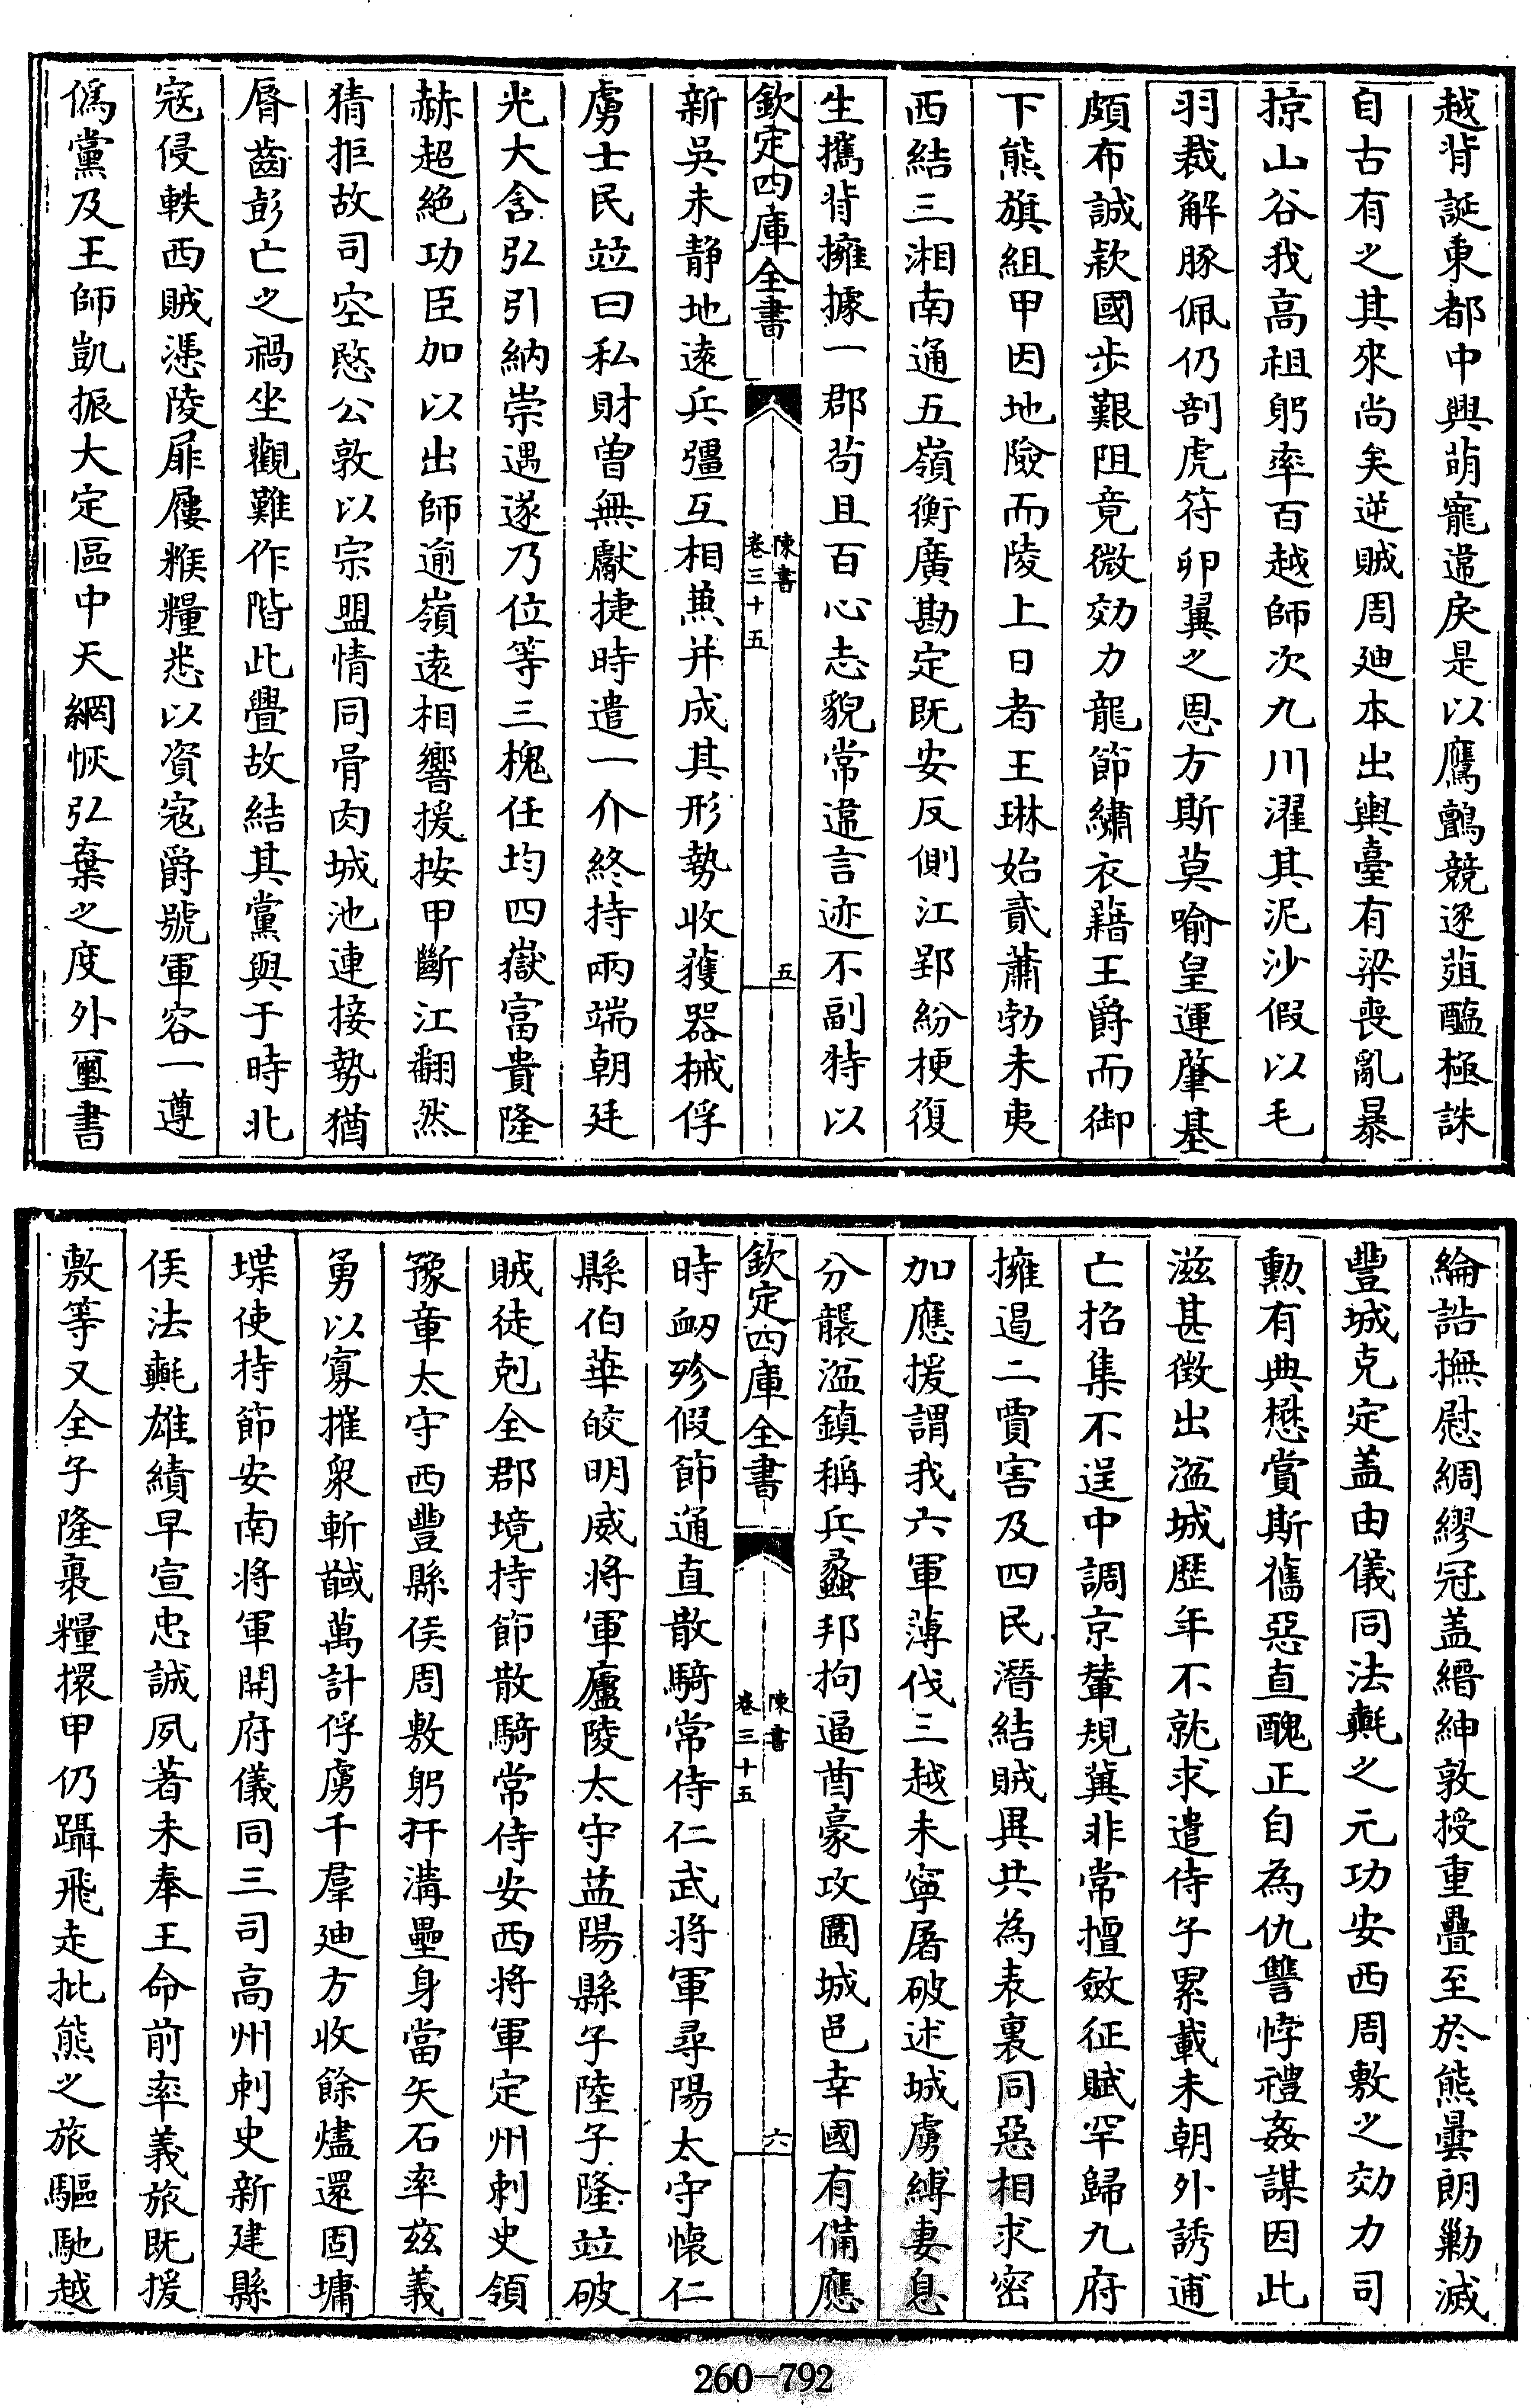 越背誕東都中興萌寵違戾是以鷹鸇競逐葅醢極誅
自古有之其來尚矣逆賊周廸本出輿臺有梁喪亂暴
掠山谷我高祖躬率百越師次九川濯其泥沙假以毛
羽裁解豚佩仍剖虎符卵翼之恩方斯莫喻皇運肇基
頗布誠欵國步艱阻竟微効力龍節繡衣藉王爵而御
下熊旗組甲因地險而陵上日者王琳始貳蕭勃未夷
西結三湘南通五嶺衡廣勘定既安反側江郢紛梗復
生攜背擁據一郡茍且百心志貌常違言迹不副特以
欽定四庫全書
陳書
卷三十五
五
新吳未静地逺兵彊互相兼并成其形勢收獲器械俘
虜士民竝曰私財曽無獻捷時遣一介終持兩端朝廷
光大含弘引納崇遇遂乃位等三槐任均四嶽富貴隆
赫超絶功臣加以出師逾嶺逺相響援按甲斷江翻然
猜拒故司空愍公敦以宗盟情同骨肉城池連接勢猶
脣齒彭亡之禍坐觀難作階此釁故結其黨與于時北
寇侵軼西賊憑陵扉屨糇糧悉以資寇爵號軍容一遵
僞黨及王師凱振大定區中天網恢弘棄之度外璽書
綸誥撫慰綢繆冠盖縉紳敦授重疊至於熊曇朗勦滅
豐城克定盖由儀同法𣰰之元功安西周敷之効力司
勲有典懋賞斯舊惡直醜正自為仇讐悖禮姦謀因此
滋甚徴出湓城歴年不就求遣侍子累載未朝外誘逋
亡招集不逞中調京輦規冀非常擅斂征賦罕歸九府
擁遏二賈害及四民潛結賊異共為表裏同惡相求密
加應援謂我六軍薄伐三越未寧屠破述城虜縛妻息
分襲湓鎮稱兵蠡邦拘逼酋豪攻圍城邑幸國有備應
欽定四庫全書
陳書
卷三十五
六
時衂殄假節通直散騎常侍仁武将軍尋陽太守懷仁
縣伯華皎明威将軍廬陵太守益陽縣子陸子隆竝破
賊徒剋全郡境持節散騎常侍安西将軍定州刺史領
豫章太守西豐縣侯周敷躬扞溝壘身當矢石率兹義
勇以寡摧衆斬馘萬計俘虜千羣廸方收餘燼還固墉
堞使持節安南将軍開府儀同三司高州刺史新建縣
侯法𣰰雄績早宣忠誠夙著未奉王命前率義旅既援
敷等又全子隆裹糧擐甲仍躡飛走批熊之旅驅馳越
260-792